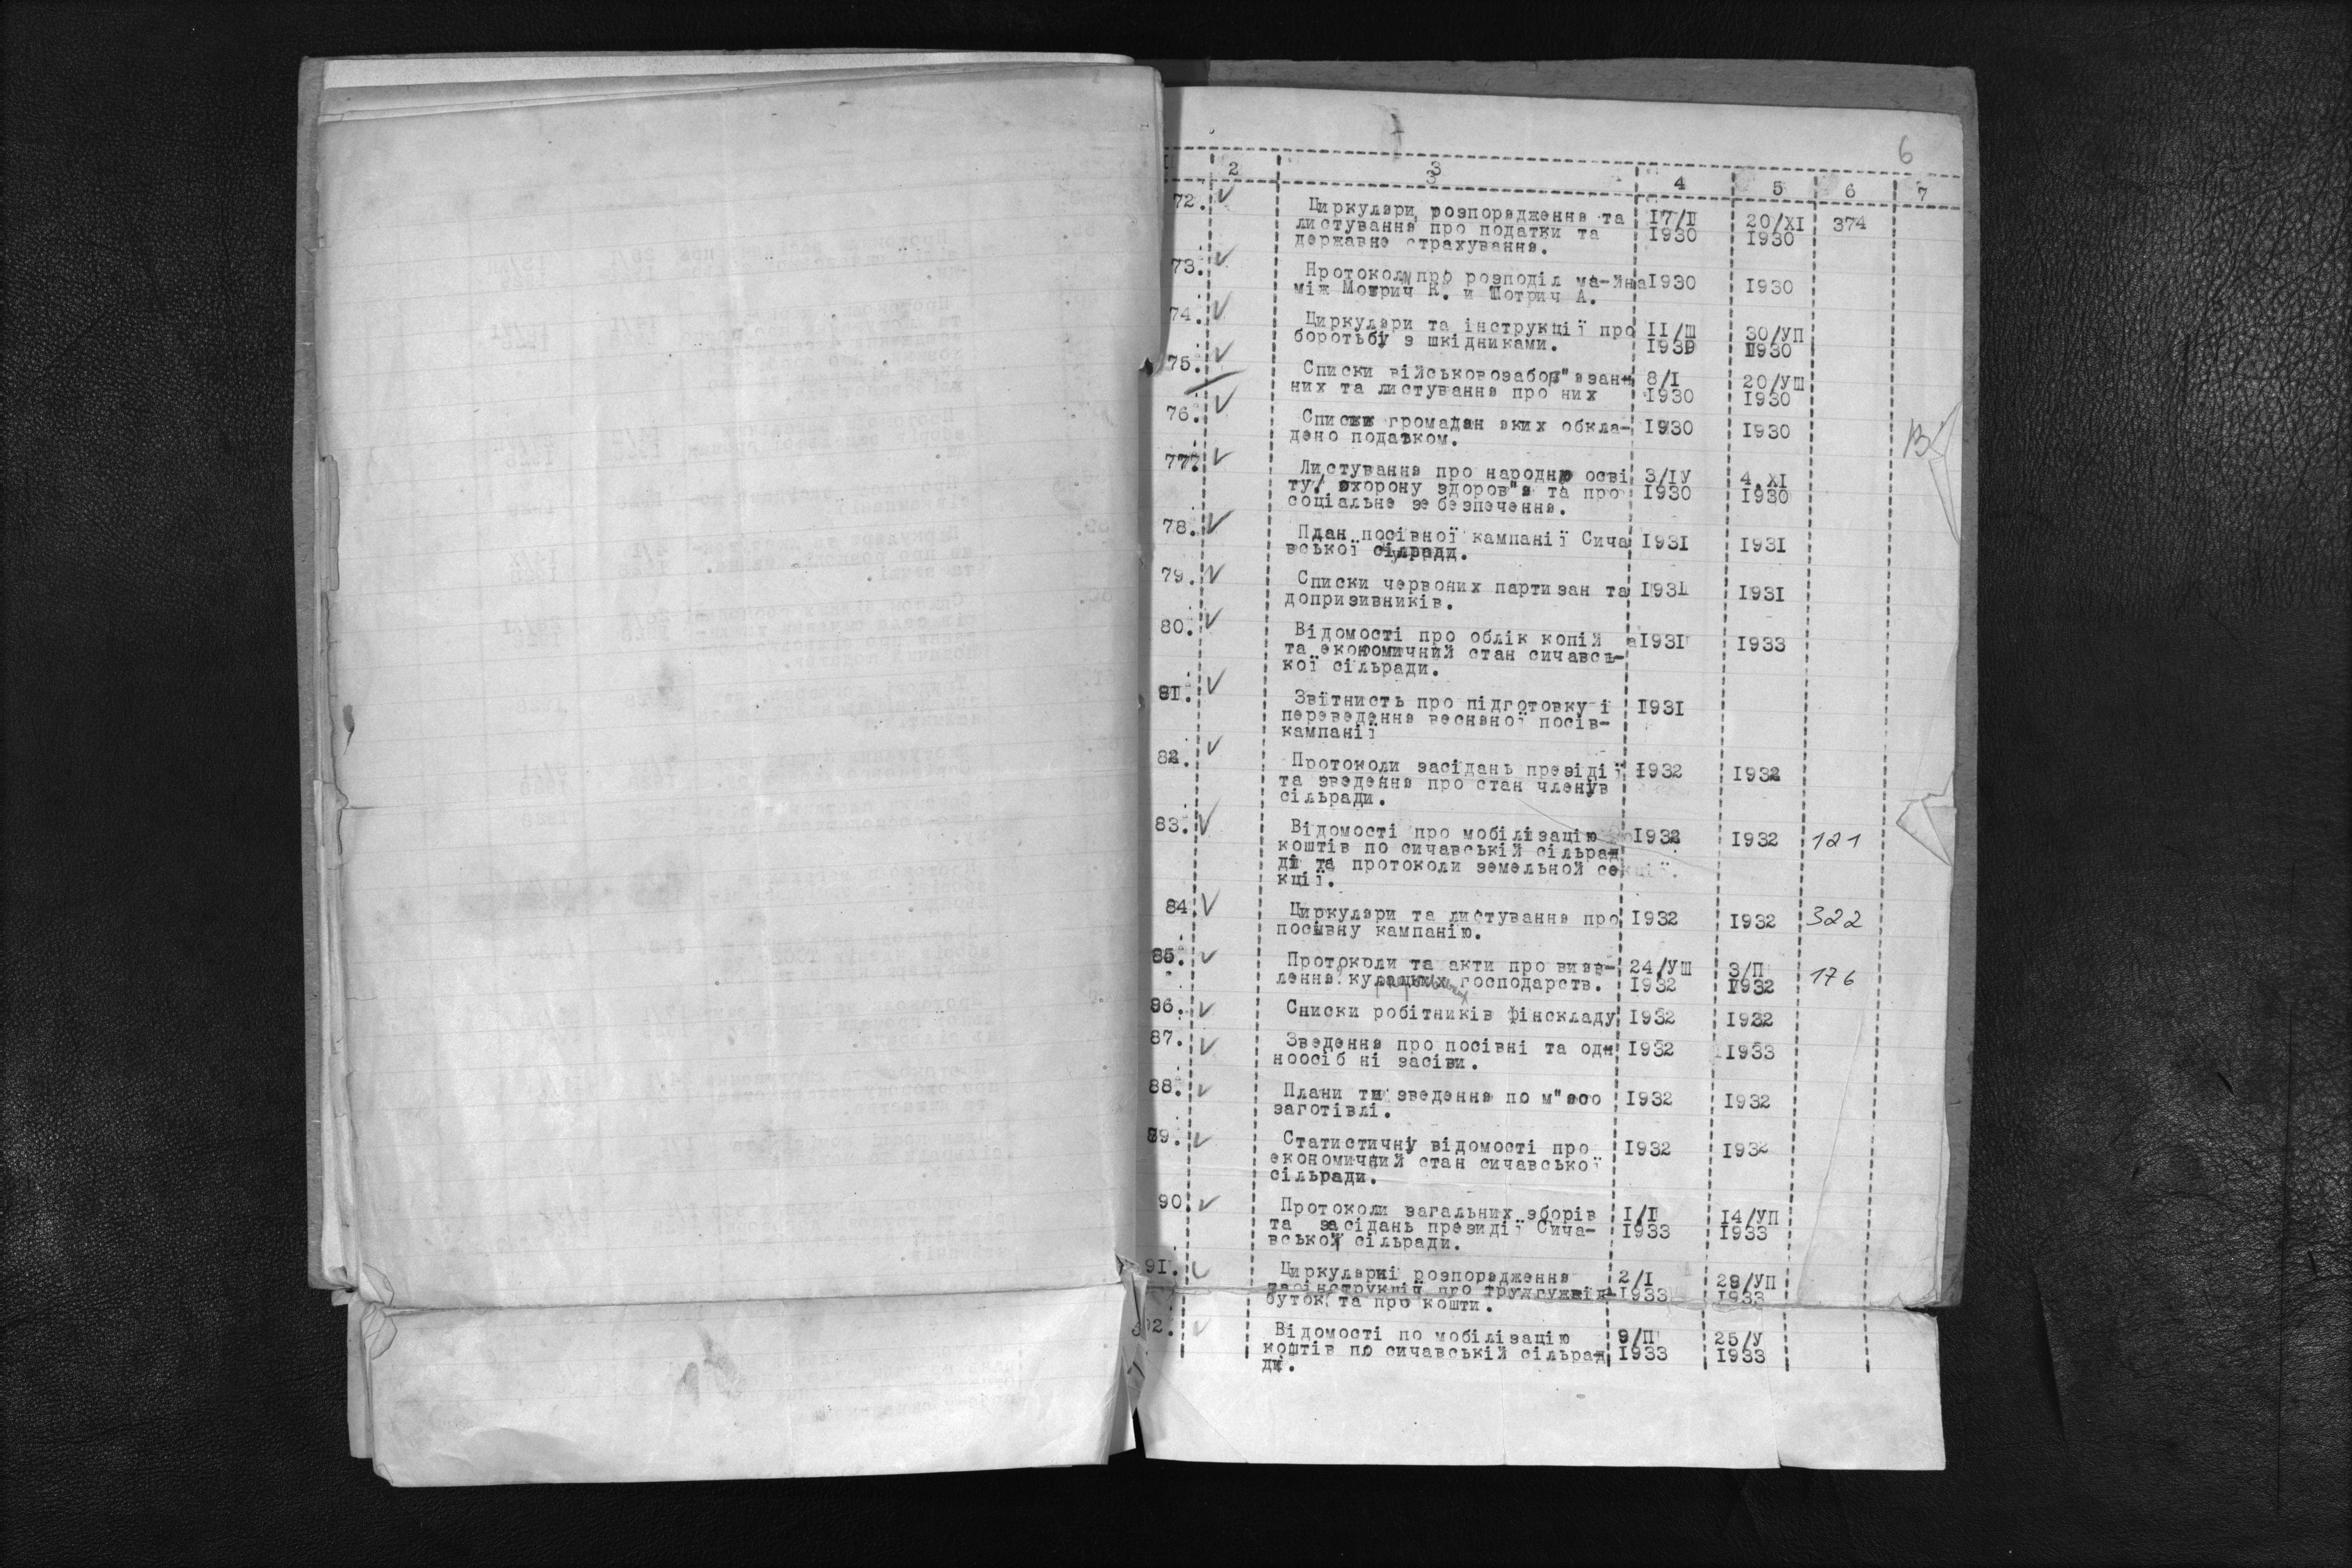 6
1 2 3 4 5 6 7
3
72. V Циркуляри, розпорядження та 17/II 20/XI 374
листування про податки та 1930 1930
державне страхування.
73. V Протоколи про розподіл ма-йна 1930 1930
між Мотрич К. и Мотрич А.
74. V Циркуляри та інструкції про II/Ш 30/УП
боротьбу з шкідниками. 1930 1930
75. V Списки військовозабов"язан- 8/I 20/УШ
них та листування про них 1930 1930
76. V Списки громадян яких обкла- 1930 1930
дено податком.
77. V Листування про народню осві 3/IУ 4.XI
ту, охорону здоров"я та про 1930 1930
соціальне забезпечення.
78. V План посівної кампанії Сича 1931 1931
вської сільради.
79. V Списки червоних партизан та 1931 1931
допризивників.
80. V Відомості про облік копій 1931 1933
та економичний стан сичавсь-
кої сільради.
81. V Звітнисть про підготовку і 1931
переведення веснаної посів-
кампанії
82. V Протоколи засідань презідії 1932 1932
та зведення про стан членув
сільради.
83. V Відомості про мобілізацію 1932 1932 121
коштів по сичавській сільрад
ді та протоколи земельной се
кції.
84. V Циркуляри та листування про 1932 1932 322
посивну кампанію.
85. V Протоколи та акти про вияв- 24/УШ 3/П 176
лення господарств. 1932 1932
86. V Сниски робітників фінскладу 1932 1932
87. V Зведення про посівні та одн 1932 1933
ноосіб ні засіви.
88. V Плани та зведення по м"ясо 1932 1932
заготівлі.
89. V Статистичну відомості про 1932 1932
економичний стан сичавської
сільради.
90. V Протоколи загальних зборів I/II 14/УП
та засідань президії Сича- 1933 1933
вської сільради.
91. V Циркулярні розпорядження 2/I 29/УП
про 1933 1933
буток та про кошти.
92. V Відомості по мобілізацію 9/П 25/У
коштів по сичавській сільрад 1933 1933
ді.